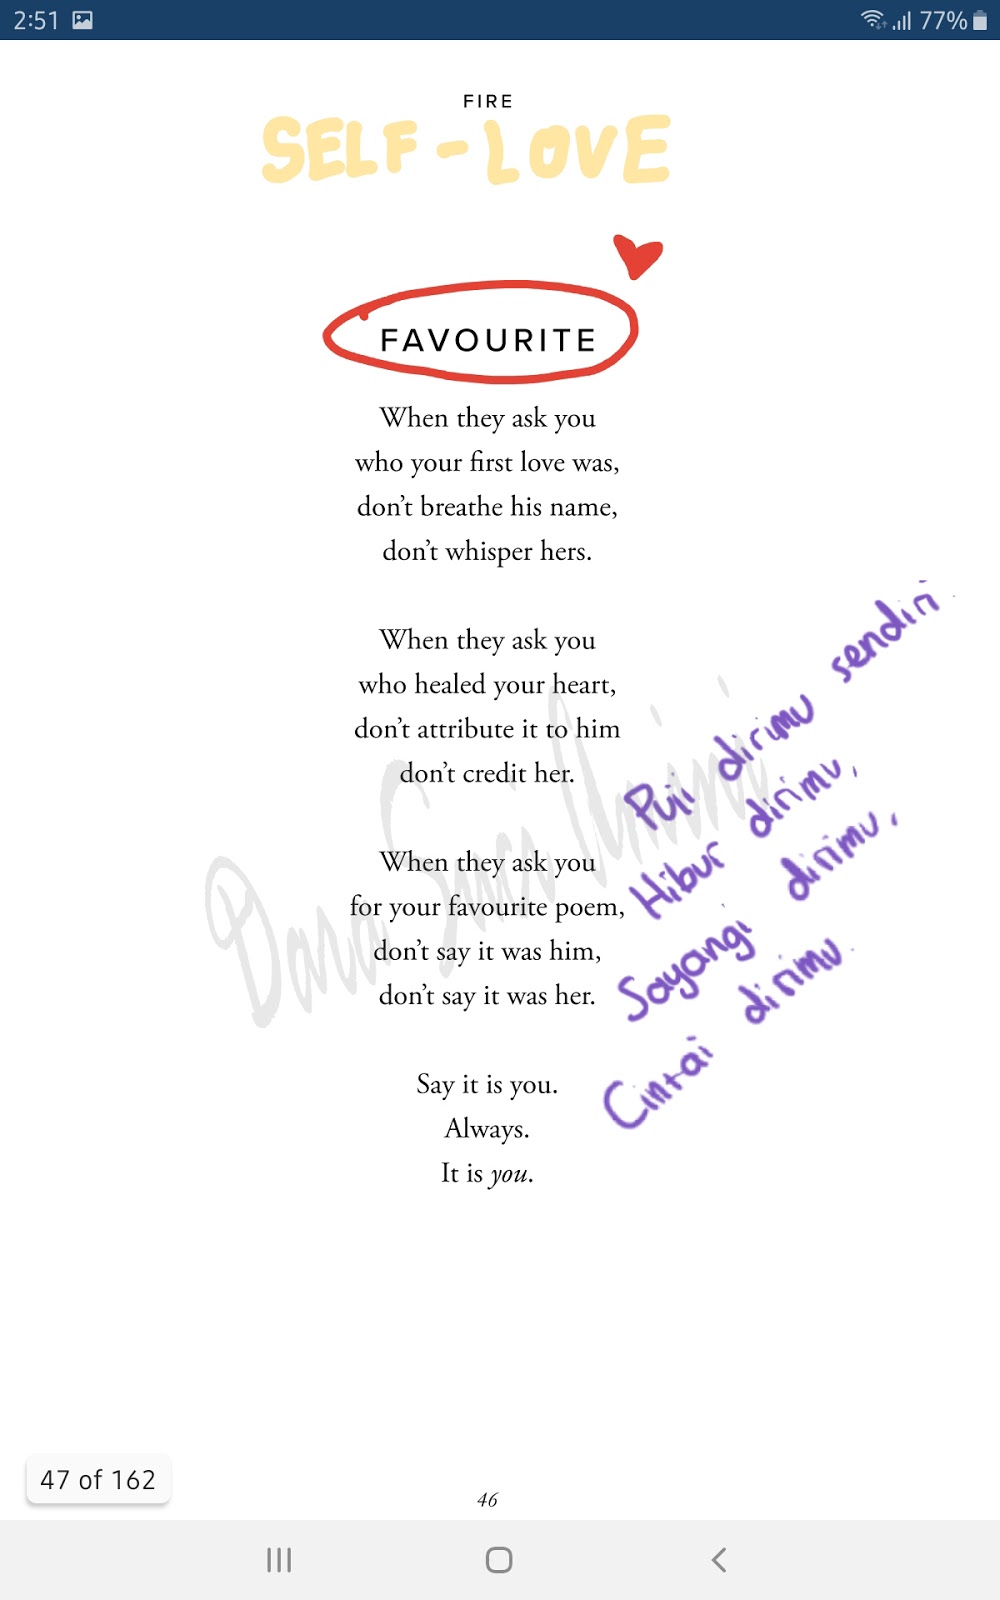 2:51 77%
FIRE
SELF-LOVE
FAVOURITE
When they ask you
who your first love was,
don't breathe his name,
don't whisper hers.
When they ask you
who healed your heart,
don't attribute it to him
don't credit her.
When they ask you
for your favourite poem,
don't say it was him,
don't say it was her.
Say it is you.
Always.
It is you.
Puji dirimu sendiri
Hibur dirimu,
Sayangi dirimu,
Cintai dirimu
Dara Suci Amini
47 of 162
46